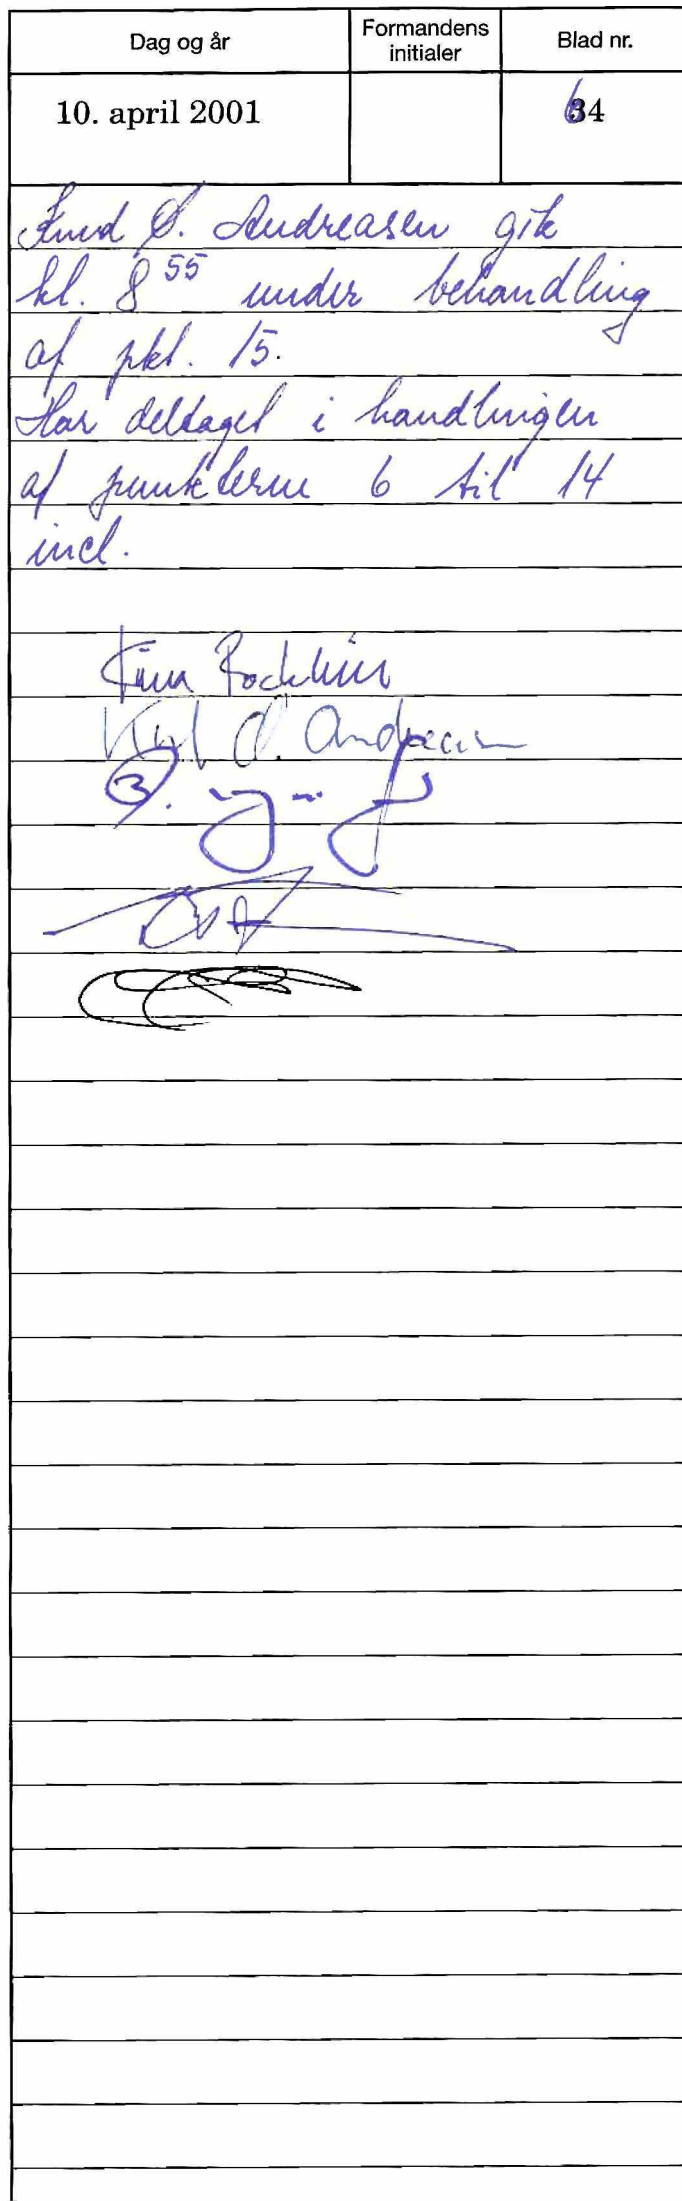 Dag og år
Formandens
initialer
Blad nr.
10. april 2001
64
Knud Ø. Andreasen gik
kl. 8 55 under behandling
af pkt. 15.
Har deltaget i handlingen
af punkterne 6 til 14
incl.
Knud Ø. Andreasen